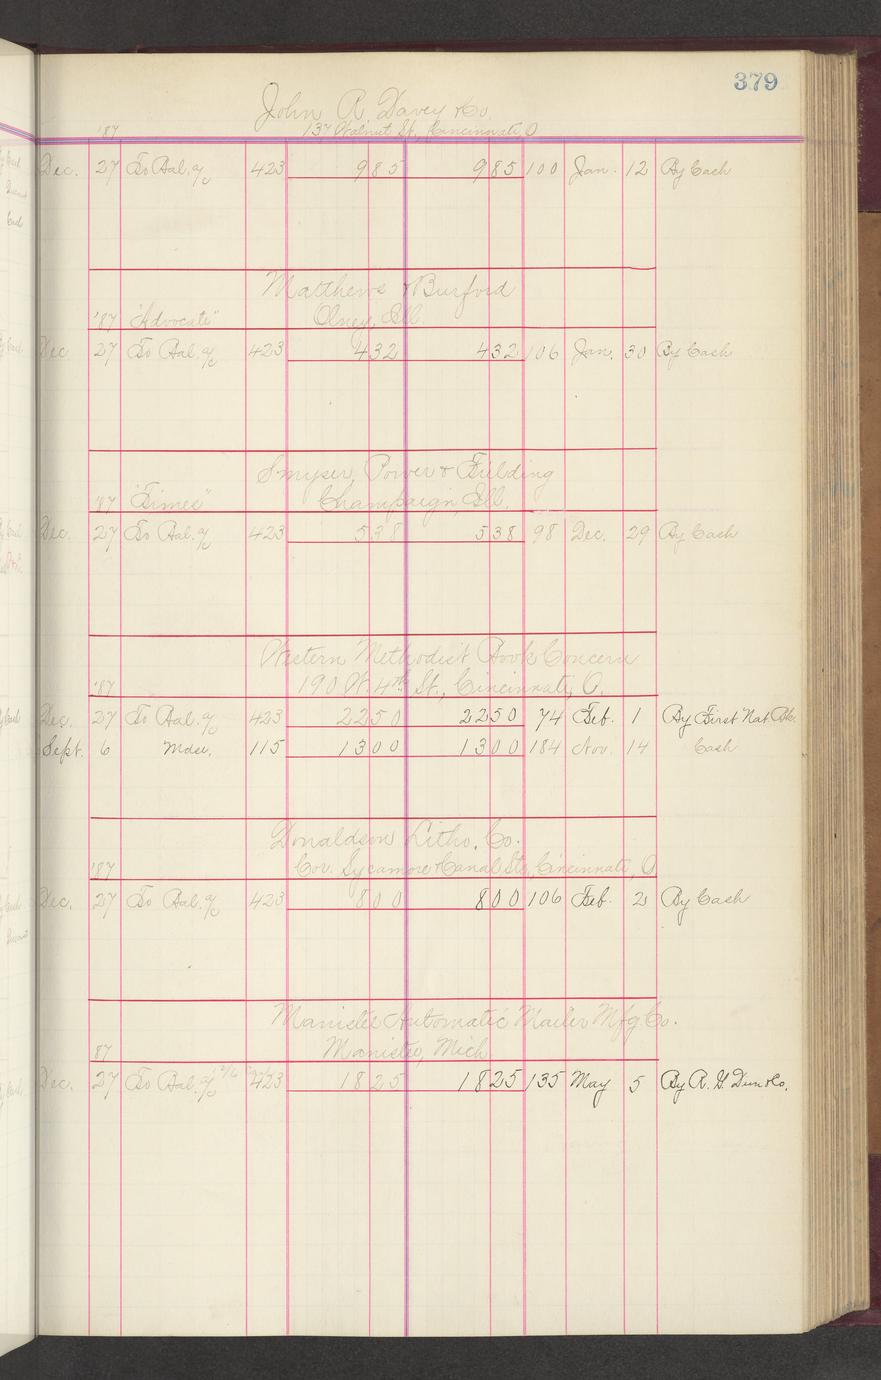 379
John R. Davey & Co.
'87 137 Walnut St., Cincinnati, O
Dec. 27 To Bal. a/c 423 985 985 100 Jan. 12 By Cash
Matthews & Burford
'87 "Advocate" Olney, Ill.
Dec. 27 To Bal. a/c 423 432 432 106 Jan. 30 By Cash
Smyser, Power & Fielding
'87 "Times" Champaign, Ill.
Dec. 27 To Bal. a/c 423 538 538 98 Dec. 29 By Cash
Western Methodist Book Concern
'87 190 W. 4th St., Cincinnati, O.
Dec. 27 To Bal. a/c 423 2250 2250 74 Feb. 1 By First Nat. Bk.
Sept. 6 Mdse. 115 1300 1300 184 Nov. 14 Cash
Donaldson Litho. Co.
'87 Cor. Sycamore & Canal Sts., Cincinnati, O
Dec. 27 To Bal. a/c 423 800 800 106 Feb. 2 By Cash
Manistee Automatic Mailer Mfg. Co.
'87 Manistee, Mich
Dec. 27 To Bal. a/c 423 1825 1825 135 May 5 By R. G. Dun & Co.